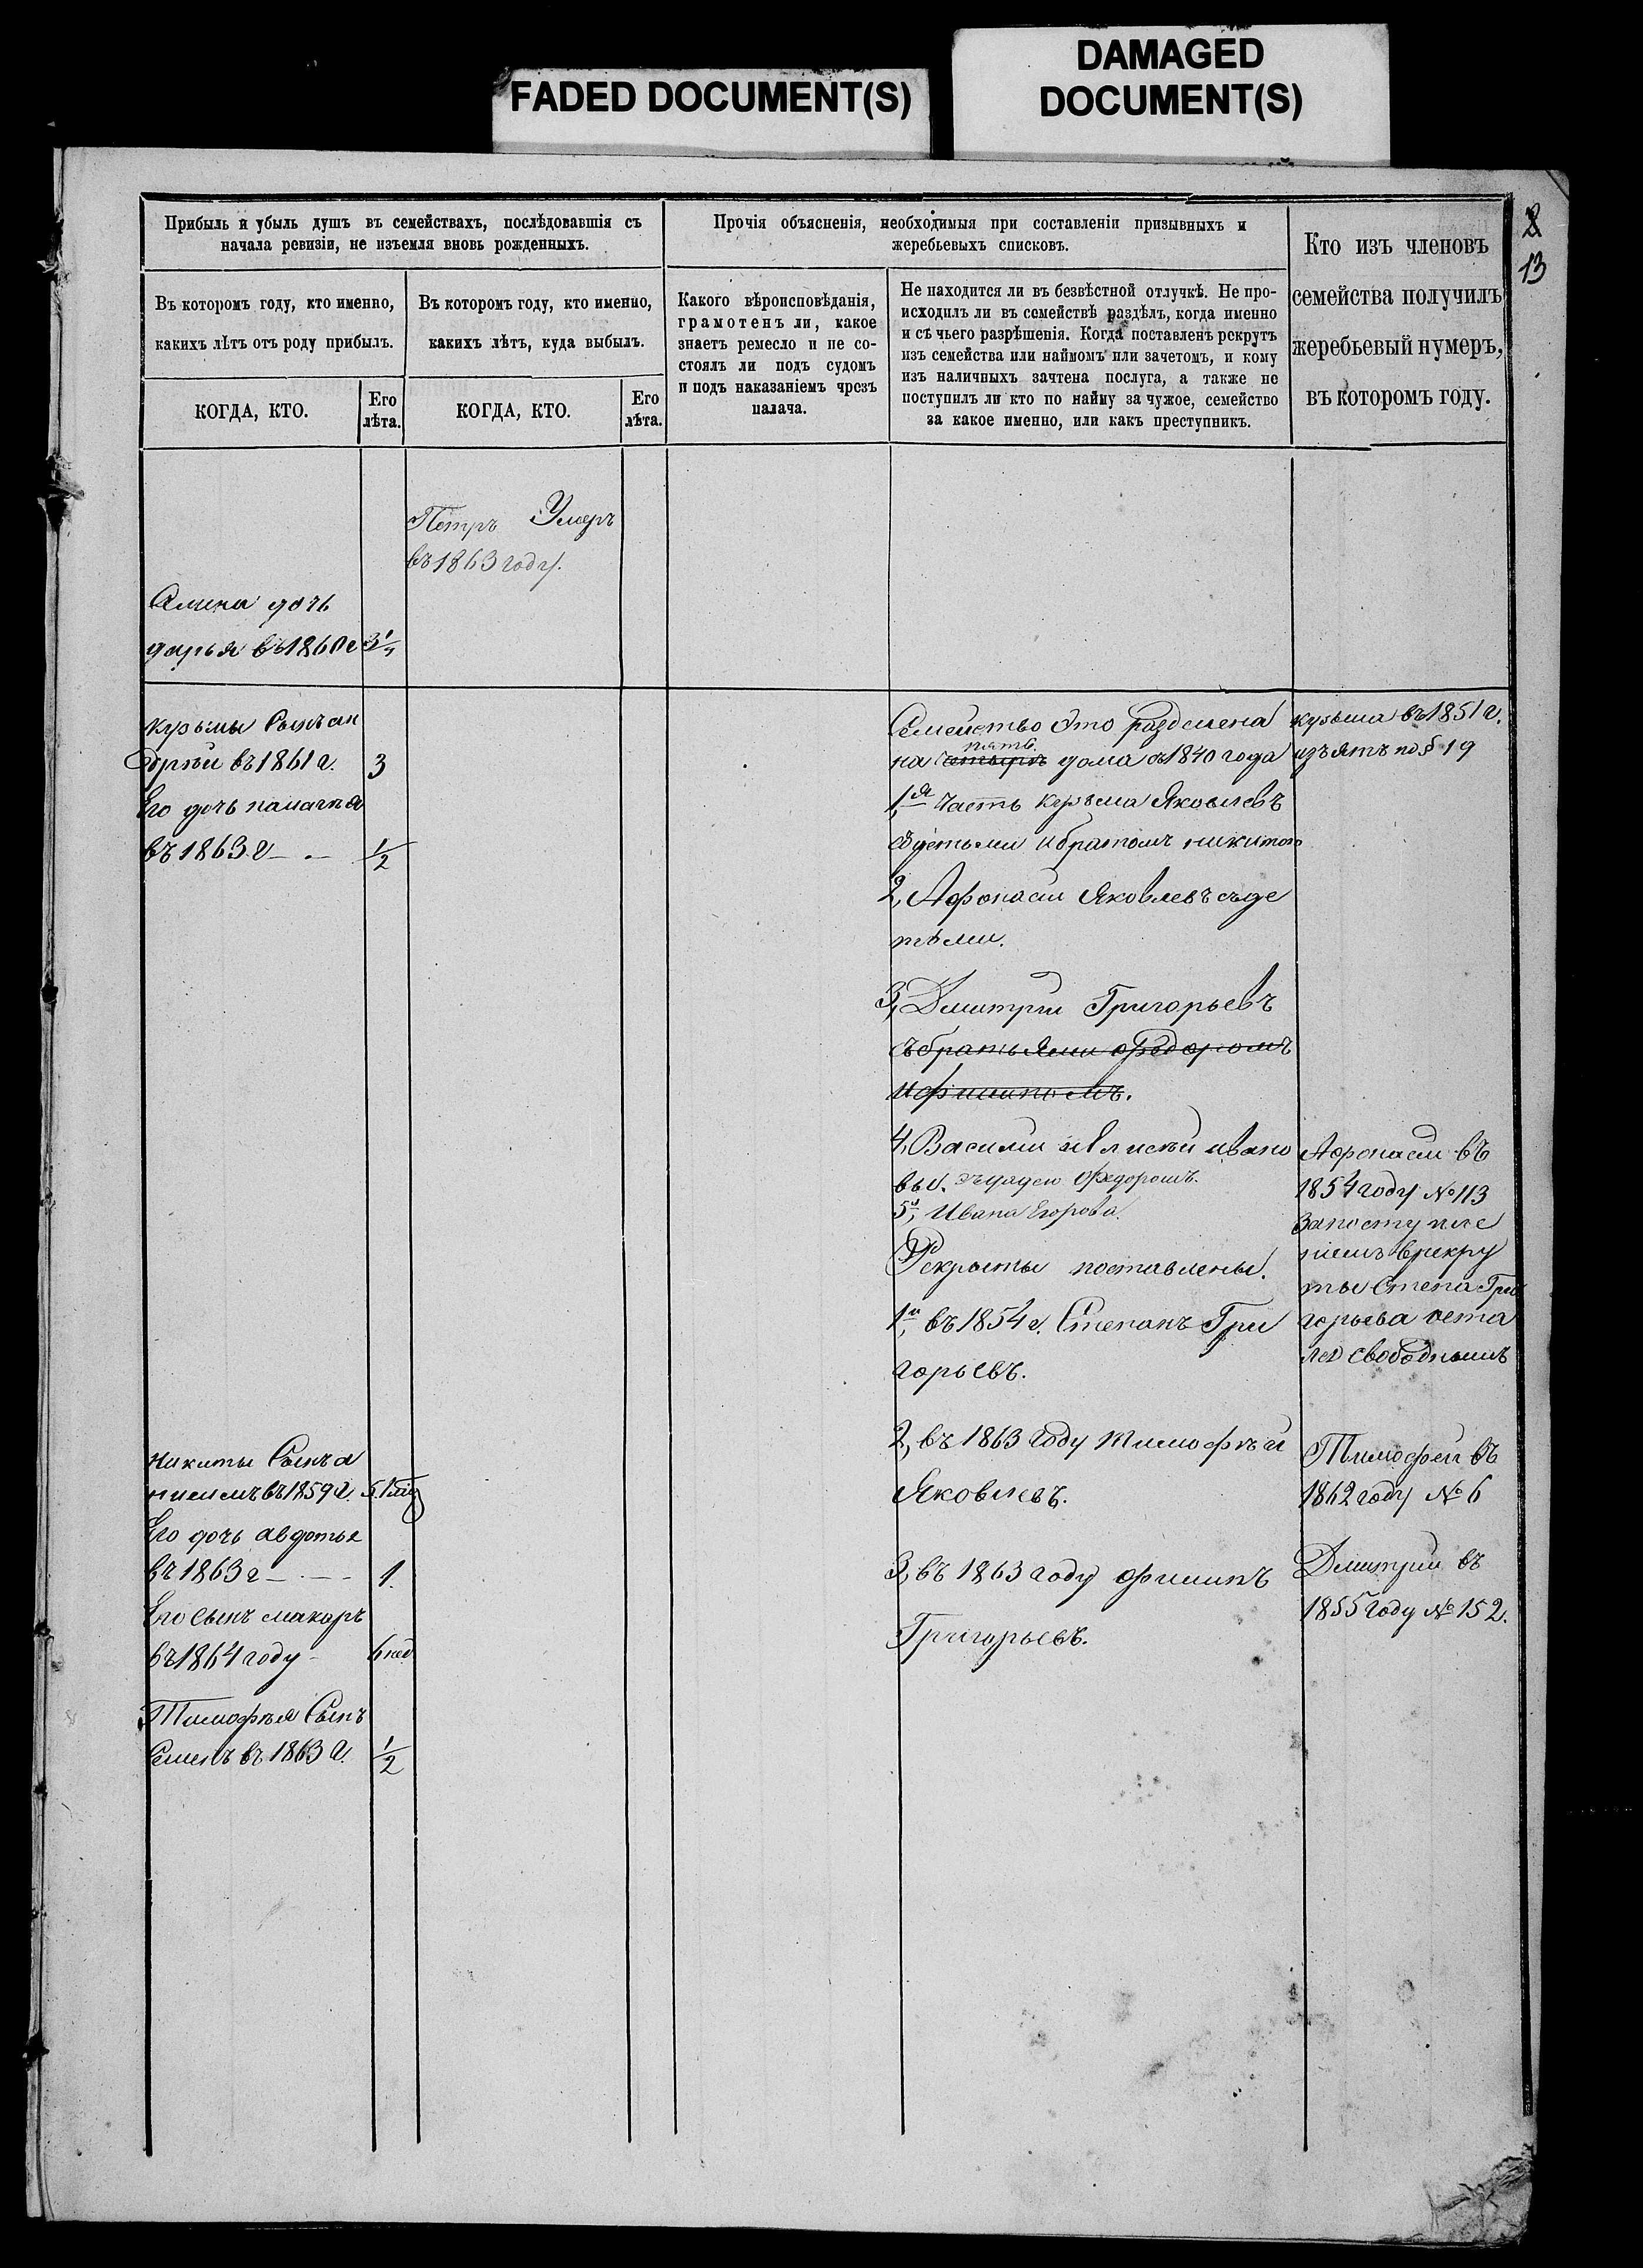 FADED DOCUMENT(S)
DAMAGED
DOCUMENT(S)
Прибыль и убыль душъ въ семействахъ, послѣдовавшія съ
начала ревизіи, не изъемля вновь рожденныхъ.
Въ которомъ году, кто именно,
какихъ лѣтъ отъ роду прибылъ.
КОГДА, КТО.
Его
лѣта.
Въ которомъ году, кто именно,
какихъ лѣтъ, куда выбылъ.
КОГДА, КТО.
Его
лѣта.
Прочія объясненія, необходимыя при составленіи призывныхъ и
жеребьевыхъ списковъ.
Какого вѣроисповѣданія,
грамотенъ ли, какое
знаетъ ремесло и не со-
стоялъ ли подъ судомъ
и подъ наказаніемъ чрезъ
палача.
Не находится ли въ безвѣстной отлучкѣ. Не про-
исходилъ ли въ семействѣ раздѣлъ, когда именно
и съ чьего разрѣшенія. Когда поставленъ рекрутъ
изъ семейства или наймомъ или зачетомъ, и кому
изъ наличныхъ зачтена послуга, а также не
поступилъ ли кто по найму за чужое, семейство
за какое именно, или какъ преступникъ.
Кто изъ членовъ
семейства получилъ
жеребьевый нумеръ,
въ которомъ году.
13
Петръ Умеръ
въ 1863 году.
дочь
дарья въ 1860 г
Курьмы Сынъ ан
дрѣй въ 1861 г. 3
Его дочь палагѣя
въ 1863 г — . — 1/2
Никиты Сынъ а
въ 1859 г.
Его дочь авдотья
въ 1863 г — . — 1.
Его сынъ макаръ
въ 1864 году - 6 нед
Тимофѣя Сынъ
Семенъ въ 1863 г. 1/2
Семейство это разделена
на пять четыре дома съ 1840 года
1я часть Кузьма Яковлевъ
сдѣтьми и братомъ никитою
2, Афонасіи Яковлевъ съ де
тьми.
3, Дмитріи Григорьевъ
съ братьями Федоромъ
и филипомъ.
4, Василіи и ивано
вы. съ дядею Федоромъ.
5, Ивана Егорова.
Рекруты поставлены.
1й, въ 1854 г. Степанъ Гри
горьевъ.
2, въ 1863 году тимофѣй
Яковлевъ.
3, въ 1863 году филипъ
Григорьевъ.
кузьма въ 1851 г.
изъятъ по § 19
Афонасіи въ
1854 году № 113
За поступле
ніемъ врекру
ты Степа Гри
горьева оста
лся свободнымъ
Тимофей въ
1862 году № 6
Дмитріи въ
1855 году № 152.